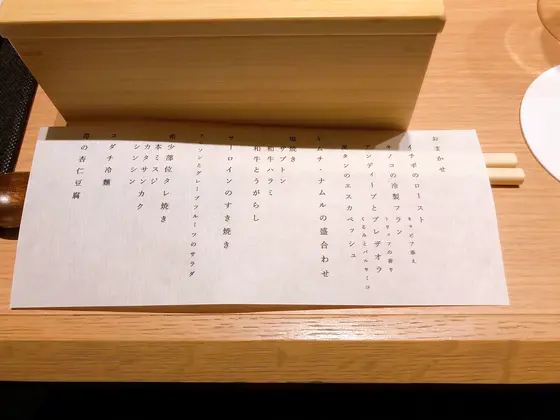 おまかせ
イチボのロースト
キャビア添え
キノコの冷製フラン
の香り
アンディーブとブレザオラ
くるみとバルサミコ
タンのエスカベッシュ
キムチ・ナムルの盛合わせ
塩焼き
ザブトン
和牛ハラミ
和牛とうがらし
サーロインのすき焼き
とグレープフルーツのサラダ
希少部位タレ焼き
本ミスジ
カタサンカク
シンシン
コダチ冷麺
の杏仁豆腐